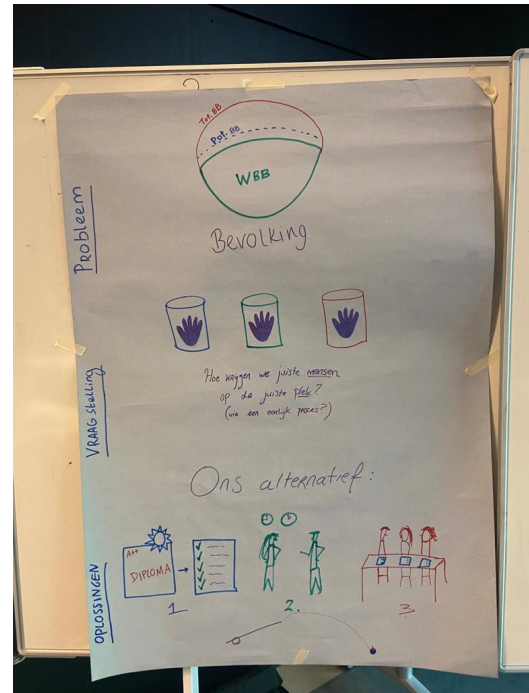 PROBLEEM
Tot. BB
Pot. BB
WBB
Bevolking
VRAAGstelling
Hoe krygen we juiste mensen
op de juiste plek?
(via een eerlijk proces?)
Ons alternatief:
OPLOSSINGEN
A++
DIPLOMA
1
2.
3